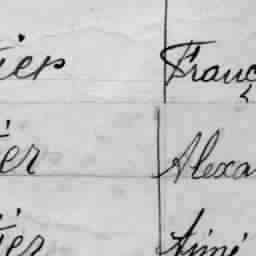 iers Franç
ier Alexa
ier Aimé